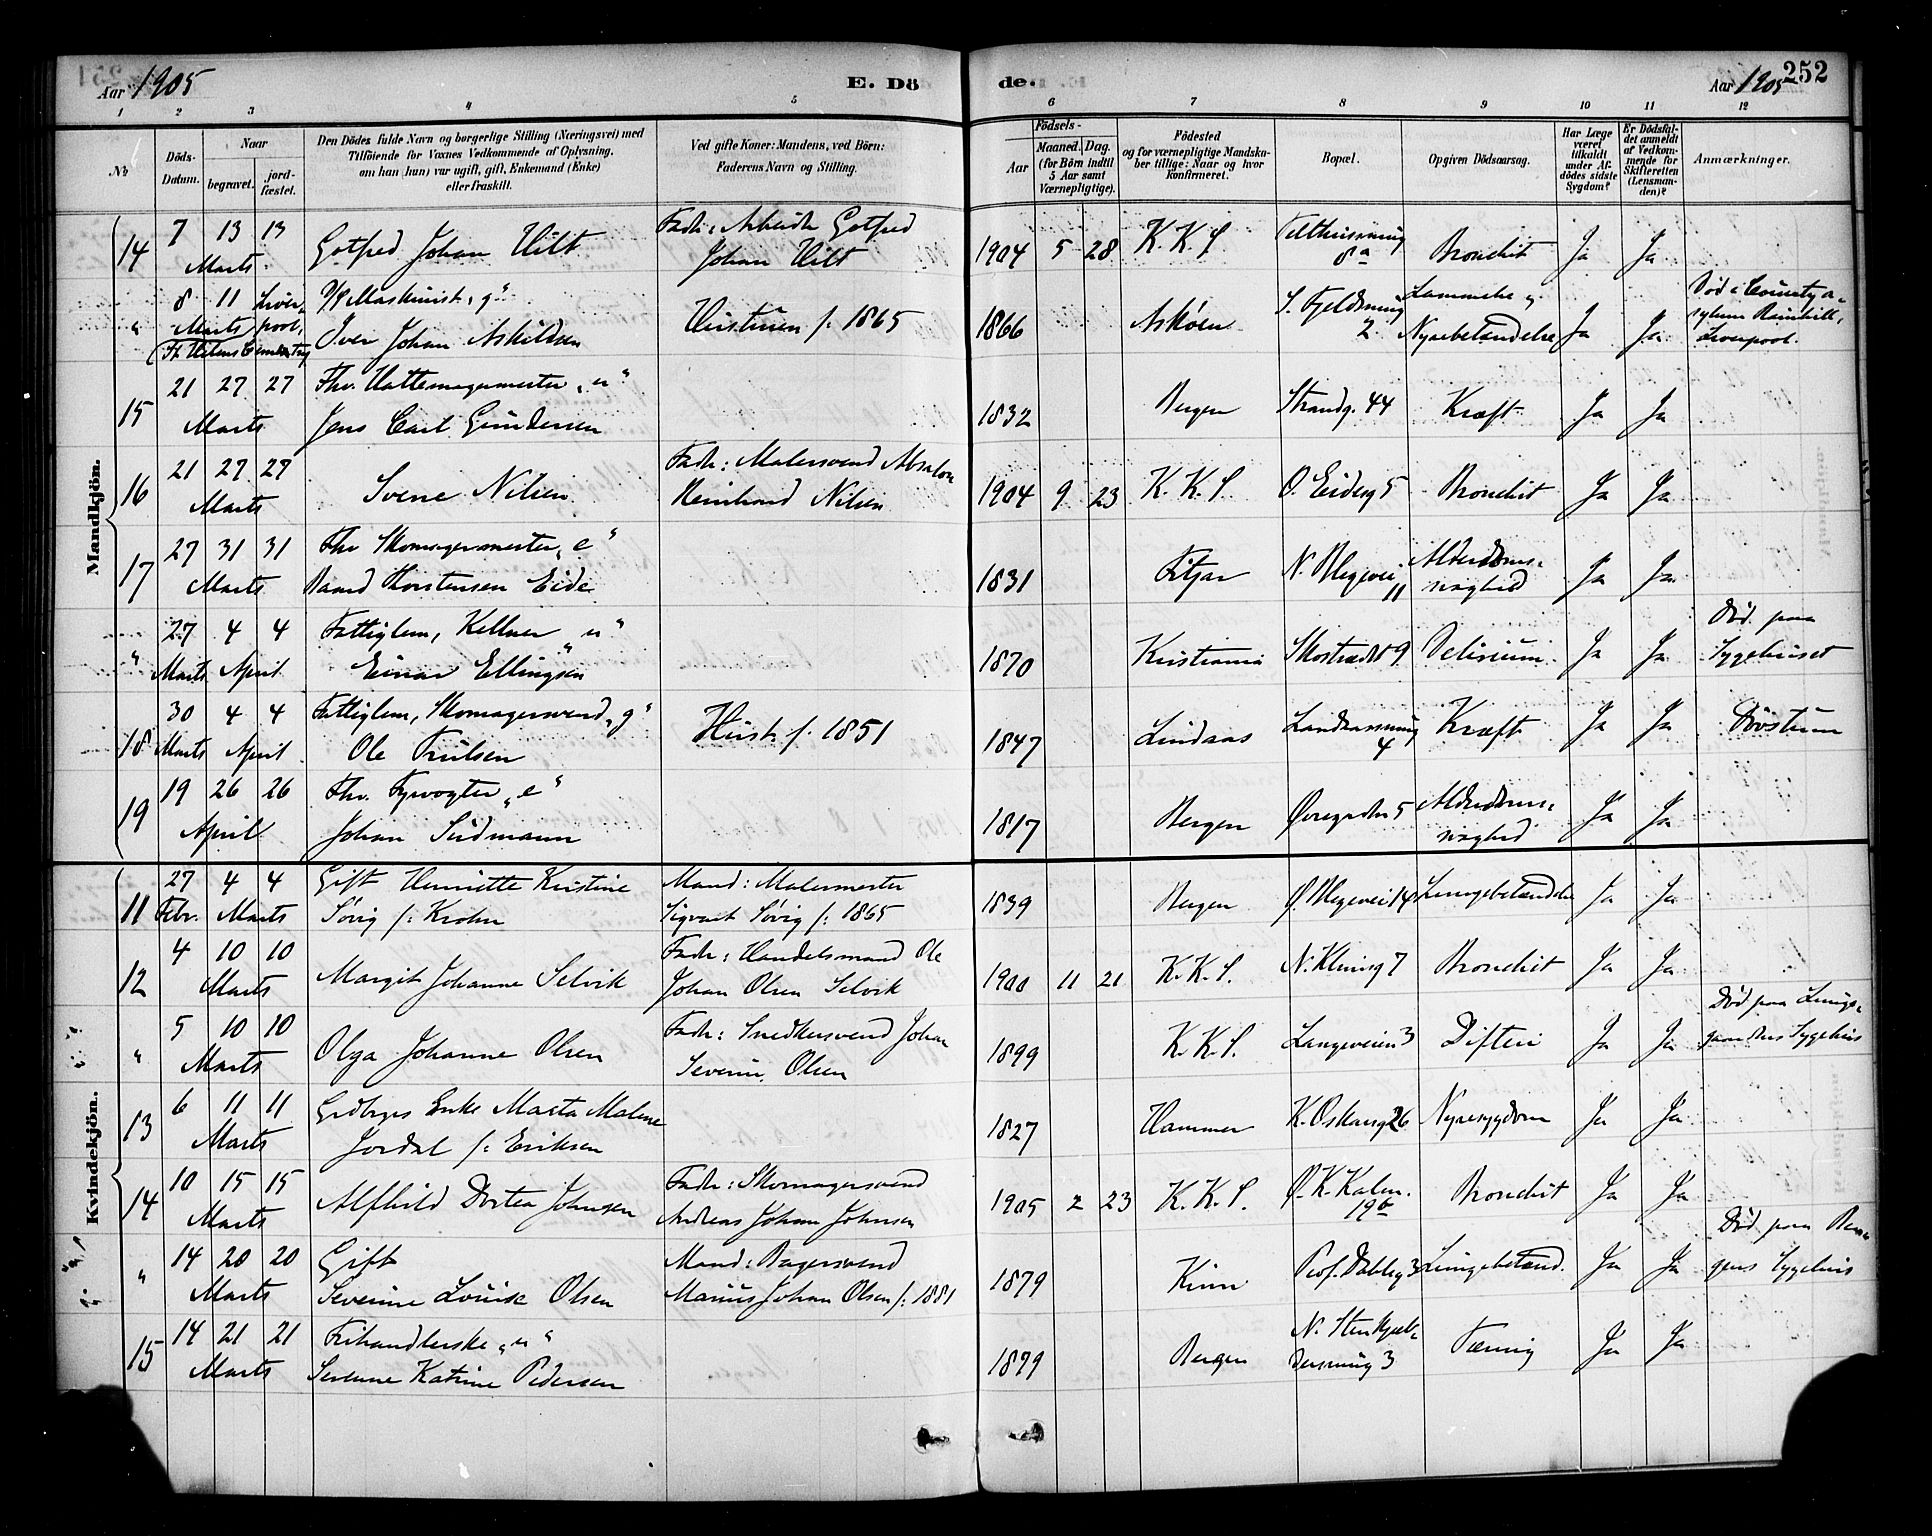 Aar 1905
E. Dö
de.
Aar 1905
252
1 2 3 4 5 6 7 8 9 10 11 12
No
Döds-Datum.
Naar
begravet.
jord-fæstet.
Den Dödes fulde Navn og borgerlige Stilling (Næringsvei) med
Tilföiende for Voxnes Vedkommende af Oplysning,
om han (hun) var ugift, gift, Enkemand (Enke)
eller fraskilt.
Ved gifte Koner: Mandens, ved Börn:
Faderens Navn og Stilling.
Födsels-
Aar
Maaned. Dag.
(for Börn indtil
5 Aar samt
Værnepligtige).
Födested
og for værnepligtige Mandska-
ber tillige: Naar og hvor
konfirmeret.
Bopæl.
Opgiven Dödsaarsag.
Har Læge
været
tilkaldt
under Af-
dödes sidste
Sygdom?
Er Dödsfal-
det anmeldt
af Vedkom-
mende for
Skifteretten
(Lensman-
den)?
Anmærkninger.
Mandkjön.
14 7 13 13 Marts Gotfred Johan Hilt Fader: Arbeider Gotfred
Johan Hilt 1904 5 28 K. K. S. 8a Bronchit Ja Ja
" 8 11 Liver-
Marts pool, Maskinist, "g"
St Helens Cemetery Iver Johan Askildsen f. 1865 1866 Askøen S. Fjeldsmug 2 Lammelse og
Nyrebetændelse Ja Ja Død i County a-
sylum Rainhill,
Liverpool.
15 21 27 27 Marts Fhv. Hattemagermester "u"
Jens Carl Gundersen 1832 Bergen Strandg. 44 Kræft Ja Ja
16 21 27 27 Marts Sverre Nilsen Fader: Malersvend Absalon
Reinhard Nilsen 1904 9 23 K. K. S. Ø. Eideg 5 Bronchit Ja Ja
17 27 31 31 Marts Fhv Skomagermester "e"
Baard Thorstensen Eide 1831 Fitjar N. Blegevei 11 Alderdoms-
svaghed Ja Ja
" 27 4 4 Marts April Fattiglem, Kellner "u"
Einar Ellingsen 1870 Kristiania Skostrædet 9 Delirium Ja Ja Død paa
Sygehuset
18 30 4 4 Marts April Fattiglem, Skomagersvend "g"
Ole Trulsen Hust. f. 1851 1847 Lindaas 4 Kræft Ja Ja
19 19 26 26 April Fhv. Fyrvogter "e"
Johan Sudmann 1817 Bergen Øvregaden 5 Alderdoms-
svaghed Ja Ja
Kvindekjön.
11 27 4 4 Febr. Marts Gift Henriette Kristine
Sørig f: Krohn Mand: Malermester
Sigvart Sørig f: 1865 1839 Bergen Ø. Blegevei 14 Lungebetændelse Ja Ja
12 4 10 10 Marts Margit Johanne Selvik Fader: Handelsmand Ole
Johan Olsen Selvik 1900 11 21 K. K. S. N. Kleivsg 7 Bronchit Ja Ja
" 5 10 10 Marts Olga Johanne Olsen Fader: Snedkersvend Johan
Severin Olsen 1899 K. K. S. Langeveien 3 Difteri Ja Ja Død paa Lungе-
gaardens Sygehus
13 6 11 11 Marts Enke Marta Malene
Jordal f: Eriksen 1827 Hammer K. Oskarsg 26 Nyresygdom Ja Ja
14 10 15 15 Marts Alfhild Dortea Johnsen Fader: Skomagersvend
Andreas Johan Johnsen 1905 2 23 K. K. S. Ø. K. Kalm. 19b Bronchit Ja Ja
" 14 20 20 Marts Gift
Severine Lovise Olsen Mand: Bagersvend
Marius Johan Olsen f: 1881 1879 Kinn Prof. Dahlsg 3 Lungebetænd. Ja Ja Død paa Ber-
gens Sygehus
15 14 21 21 Marts Frihandlerske "u"
Severine Katrine Pedersen 1879 Bergen N. Stenkjæl-
dersmug 3 Tæring Ja Ja